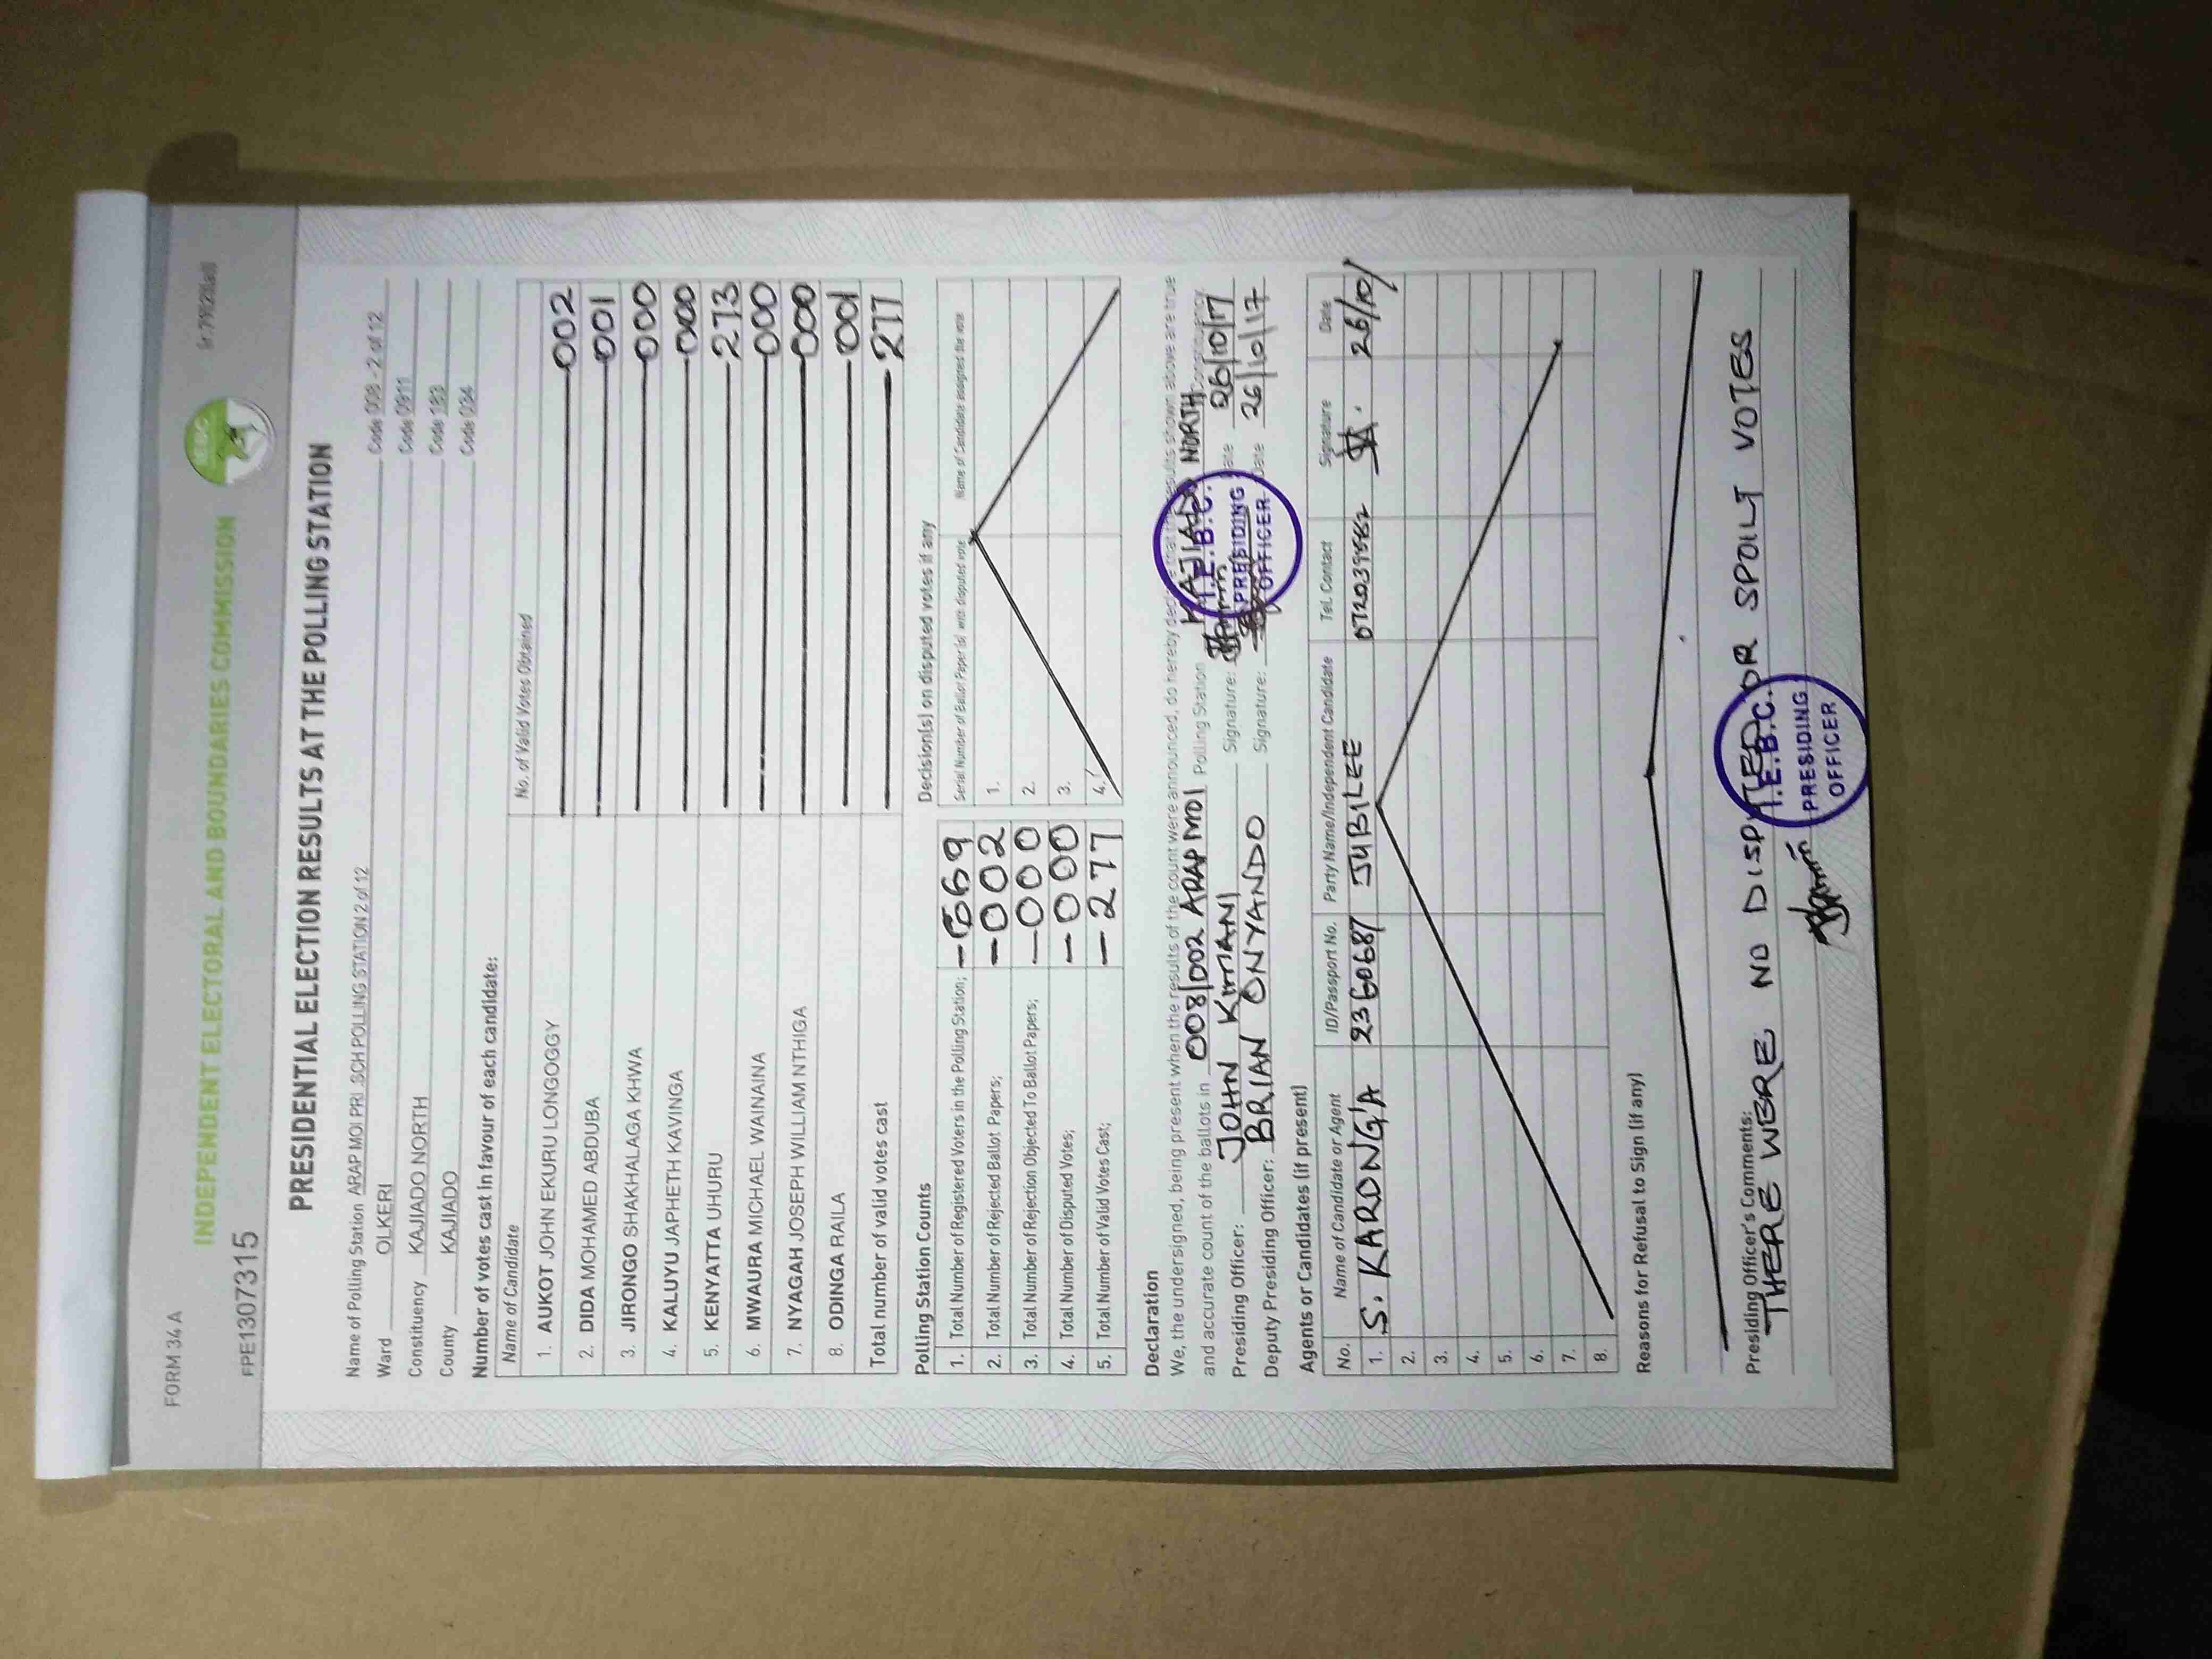 FORM 34 A
INDEPENDENT ELECTORAL AND BOUNDARIES COMMISSION
IEBC
FPE1307315
PRESIDENTIAL ELECTION RESULTS AT THE POLLING STATION
Name of Polling Station ARAP MOI PRI. SCH POLLING STATION 2 of 12 Code 008 - 2 of 12
Ward OLKERI Code 0911
Constituency KAJIADO NORTH Code 183
County KAJIADO Code 034
Number of votes cast in favour of each candidate:
Name of Candidate No. of Valid Votes Obtained
1. AUKOT JOHN EKURU LONGOGGY 002
2. DIDA MOHAMED ABDUBA 001
3. JIRONGO SHAKHALAGA KHWA 000
4. KALUYU JAPHETH KAVINGA 000
5. KENYATTA UHURU 273
6. MWAURA MICHAEL WAINAINA 000
7. NYAGAH JOSEPH WILLIAM NTHIGA 000
8. ODINGA RAILA 001
Total number of valid votes cast 277
Polling Station Counts
1. Total Number of Registered Voters in the Polling Station; 669
2. Total Number of Rejected Ballot Papers; 002
3. Total Number of Rejection Objected To Ballot Papers; 000
4. Total Number of Disputed Votes; 000
5. Total Number of Valid Votes Cast; 277
Decision(s) on disputed votes if any
Serial Number of Ballot Paper (s) with disputed vote Name of Candidate assigned the vote
1.
2.
3.
4.
Declaration
We, the undersigned, being present when the results of the count were announced, do hereby declare that the results shown above are true
and accurate count of the ballots in 008/002 ARAP MOI Polling Station KAJIADO NORTH Constituency.
Presiding Officer: JOHN KIMANI Signature: Date 26/10/17
Deputy Presiding Officer: BRIAN ONYANDO Signature: Date 26/10/17
I.E.B.C.
PRESIDING
OFFICER
Agents or Candidates (if present)
No. Name of Candidate or Agent ID/Passport No. Party Name/Independent Candidate Tel. Contact Signature Date
1. S. KARONG'A 23606687 JUBILEE 26/10/
2.
3.
4.
5.
6.
7.
8.
Reasons for Refusal to Sign (if any)
Presiding Officer's Comments:
THERE WERE NO DISPUTED OR SPOILT VOTES
I.E.B.C.
PRESIDING
OFFICER